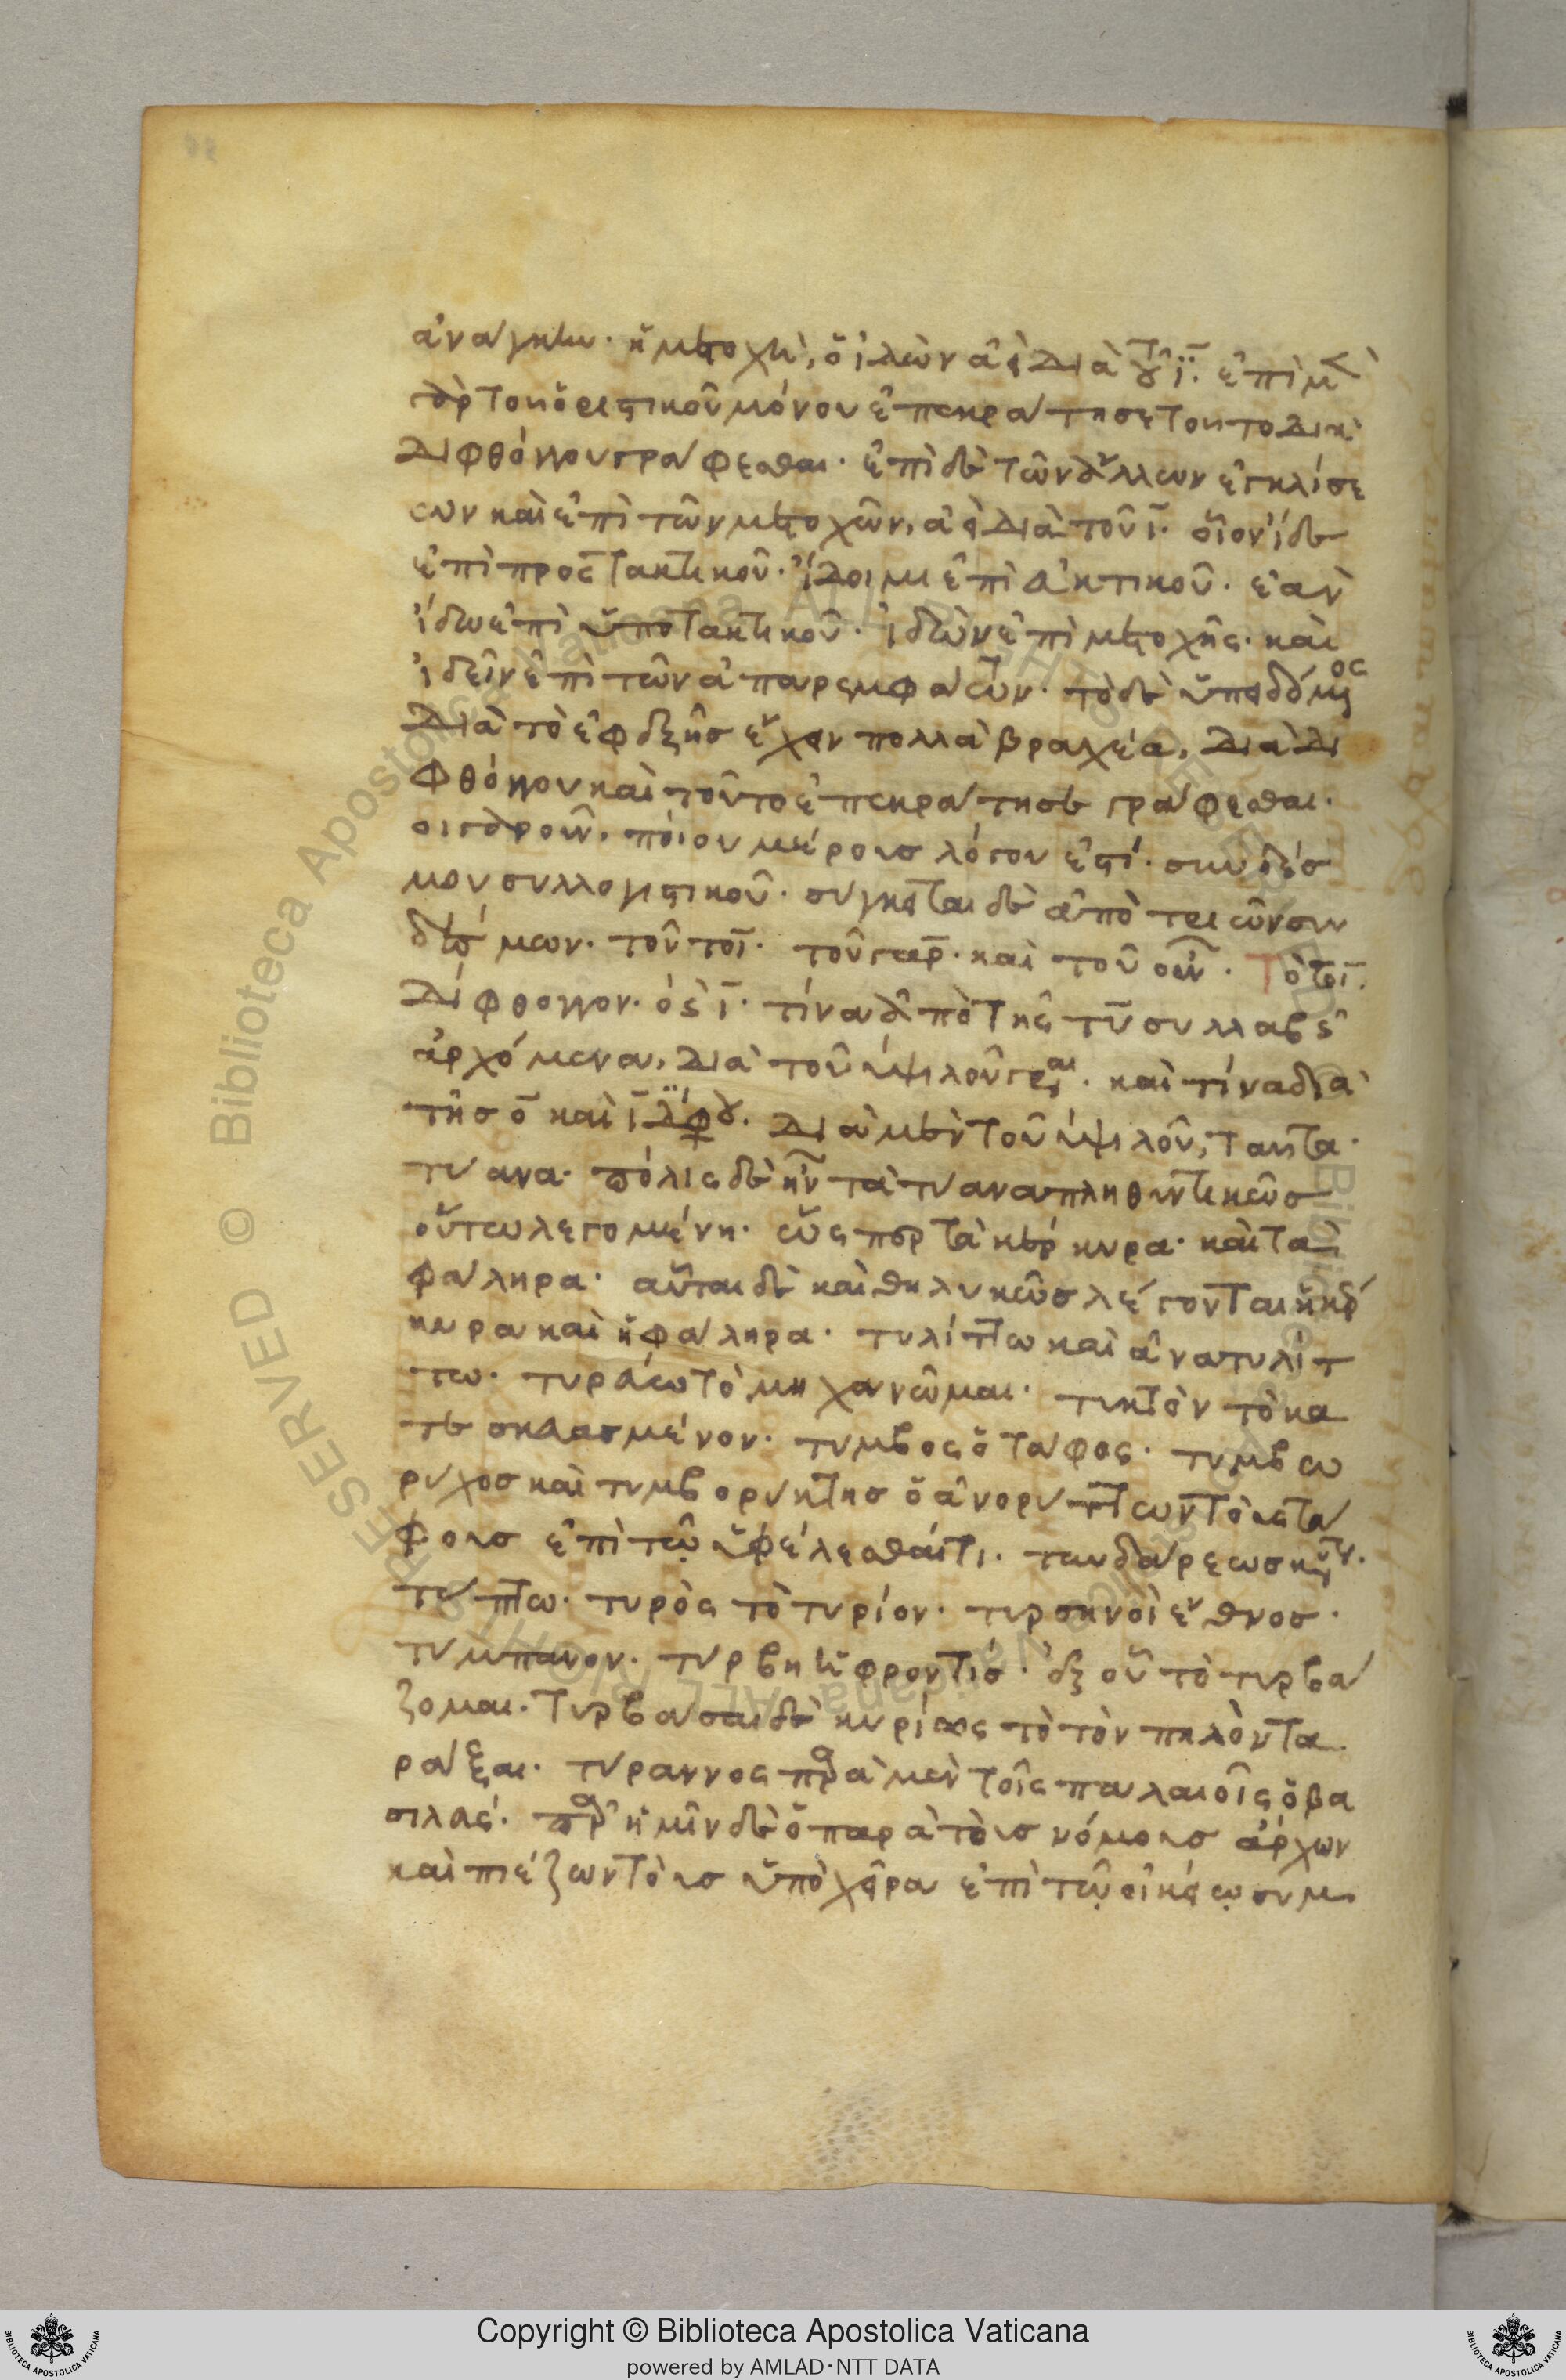 ἀνάγκην· ἡ μετοχὴ, ὁ ἰδὼν ἀεὶ διὰ τοῦ ϊ. ἐπὶ μὲν
γὰρ τοῦ ὁριστικοῦ μόνου ἐπεκράτησε τοῦτο διὰ
διφθόγγου γράφεσθαι· ἐπὶ δὲ τῶν ἄλλων ἐγκλίσε
ων καὶ ἐπὶ τῶν μετοχῶν, ἀεὶ διὰ τοῦ ϊ. οἷον ἴδε
ἐπὶ προστακτικοῦ· ἴδοιμι ἐπὶ εὐκτικοῦ· ἐὰν
ἴδω ἐπὶ ὑποτακτικοῦ· ἰδὼν ἐπὶ μετοχῆς· καὶ
ἰδεῖν ἐπὶ τῶν ἀπαρεμφάτων· τὸ δὲ
διὰ τὸ ἐφεξῆσ ἔχειν πολλὰ βραχέα, διὰ δι
φθόγγου καὶ τοῦτο ἐπεκράτησε γράφεσθαι.
οιγαροῦν. ποίου μέρουσ λόγου ἐστί· συνδέσ
μου συλλογιστικοῦ· σύγκειται δὲ ἀπὸ τριῶν συν
δέσμων· τοῦ τοί· τοῦ γαρ· καὶ τοῦ οὖν· Τὸ τοι
δίφθογγον· ο ϛ ϊ· τίνα ἀπὸ τῆς τυ συλλαβῆς
ἀρχόμενα, διὰ τοῦ ὑψιλοῦ γράφεται· καὶ τίνα διὰ
τῆσ ο καὶ ϊ διφθόγγου. διὰ μὲν τοῦ ὑψιλοῦ, ταῦτα·
τύανα· πόλις δὲ ἦν τὰ τύανα πληθυντικῶσ
οὕτω λεγομένη· ὥσπερ τὰ κέρκυρα· καὶ τὰ
φάληρα· αὗται δὲ καὶ θηλυκῶσ λέγονται ἡ κέρ
κυρα καὶ ἡ φάληρα· τυλίττω καὶ ἀνατυλίτ
τω· τυρεύω τὸ μηχανῶμαι· τυκτὸν τὸ κα
τεσκευασμένον· τύμβος ὁ τάφος· τυμβω
ρύχοσ καὶ τυμβορύκτησ ὁ ἀνορύττων τοὺς τά
φουσ ἐπὶ τῷ ὑφελέσθαι τι· τυνδάρεωσ κύριον.
τύπτω· τυρὸς τὸ τυρίον· τυρσηνοὶ ἔθνοσ·
τύμπανον· τύρβη ἡ φροντίσ· ἐξ οὗ τὸ τυρβά
ζομαι· τυρβάσαι δὲ κυρίως τὸ τὸν πηλὸν τα
ράξαι· τύραννος παρὰ μὲν τοῖς παλαιοῖς ὁ βα
σιλεύς· παρ' ἡμῖν δὲ ὁ παρὰ τοὺσ νόμουσ ἄρχων
καὶ πιέζων τοὺσ ὑπὸ χεῖρα ἐπὶ τῷ οἰκείῳ συμ
Copyright © Biblioteca Apostolica Vaticana
powered by AMLAD·NTT DATA